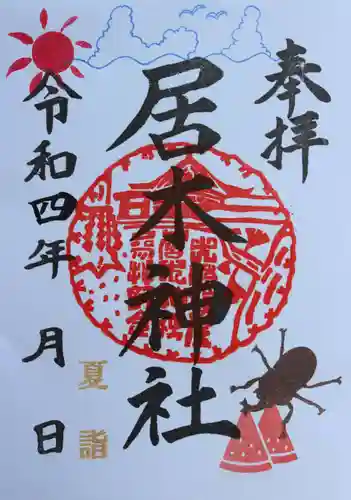 奉拝
居木神社
令和四年 月 日
夏詣